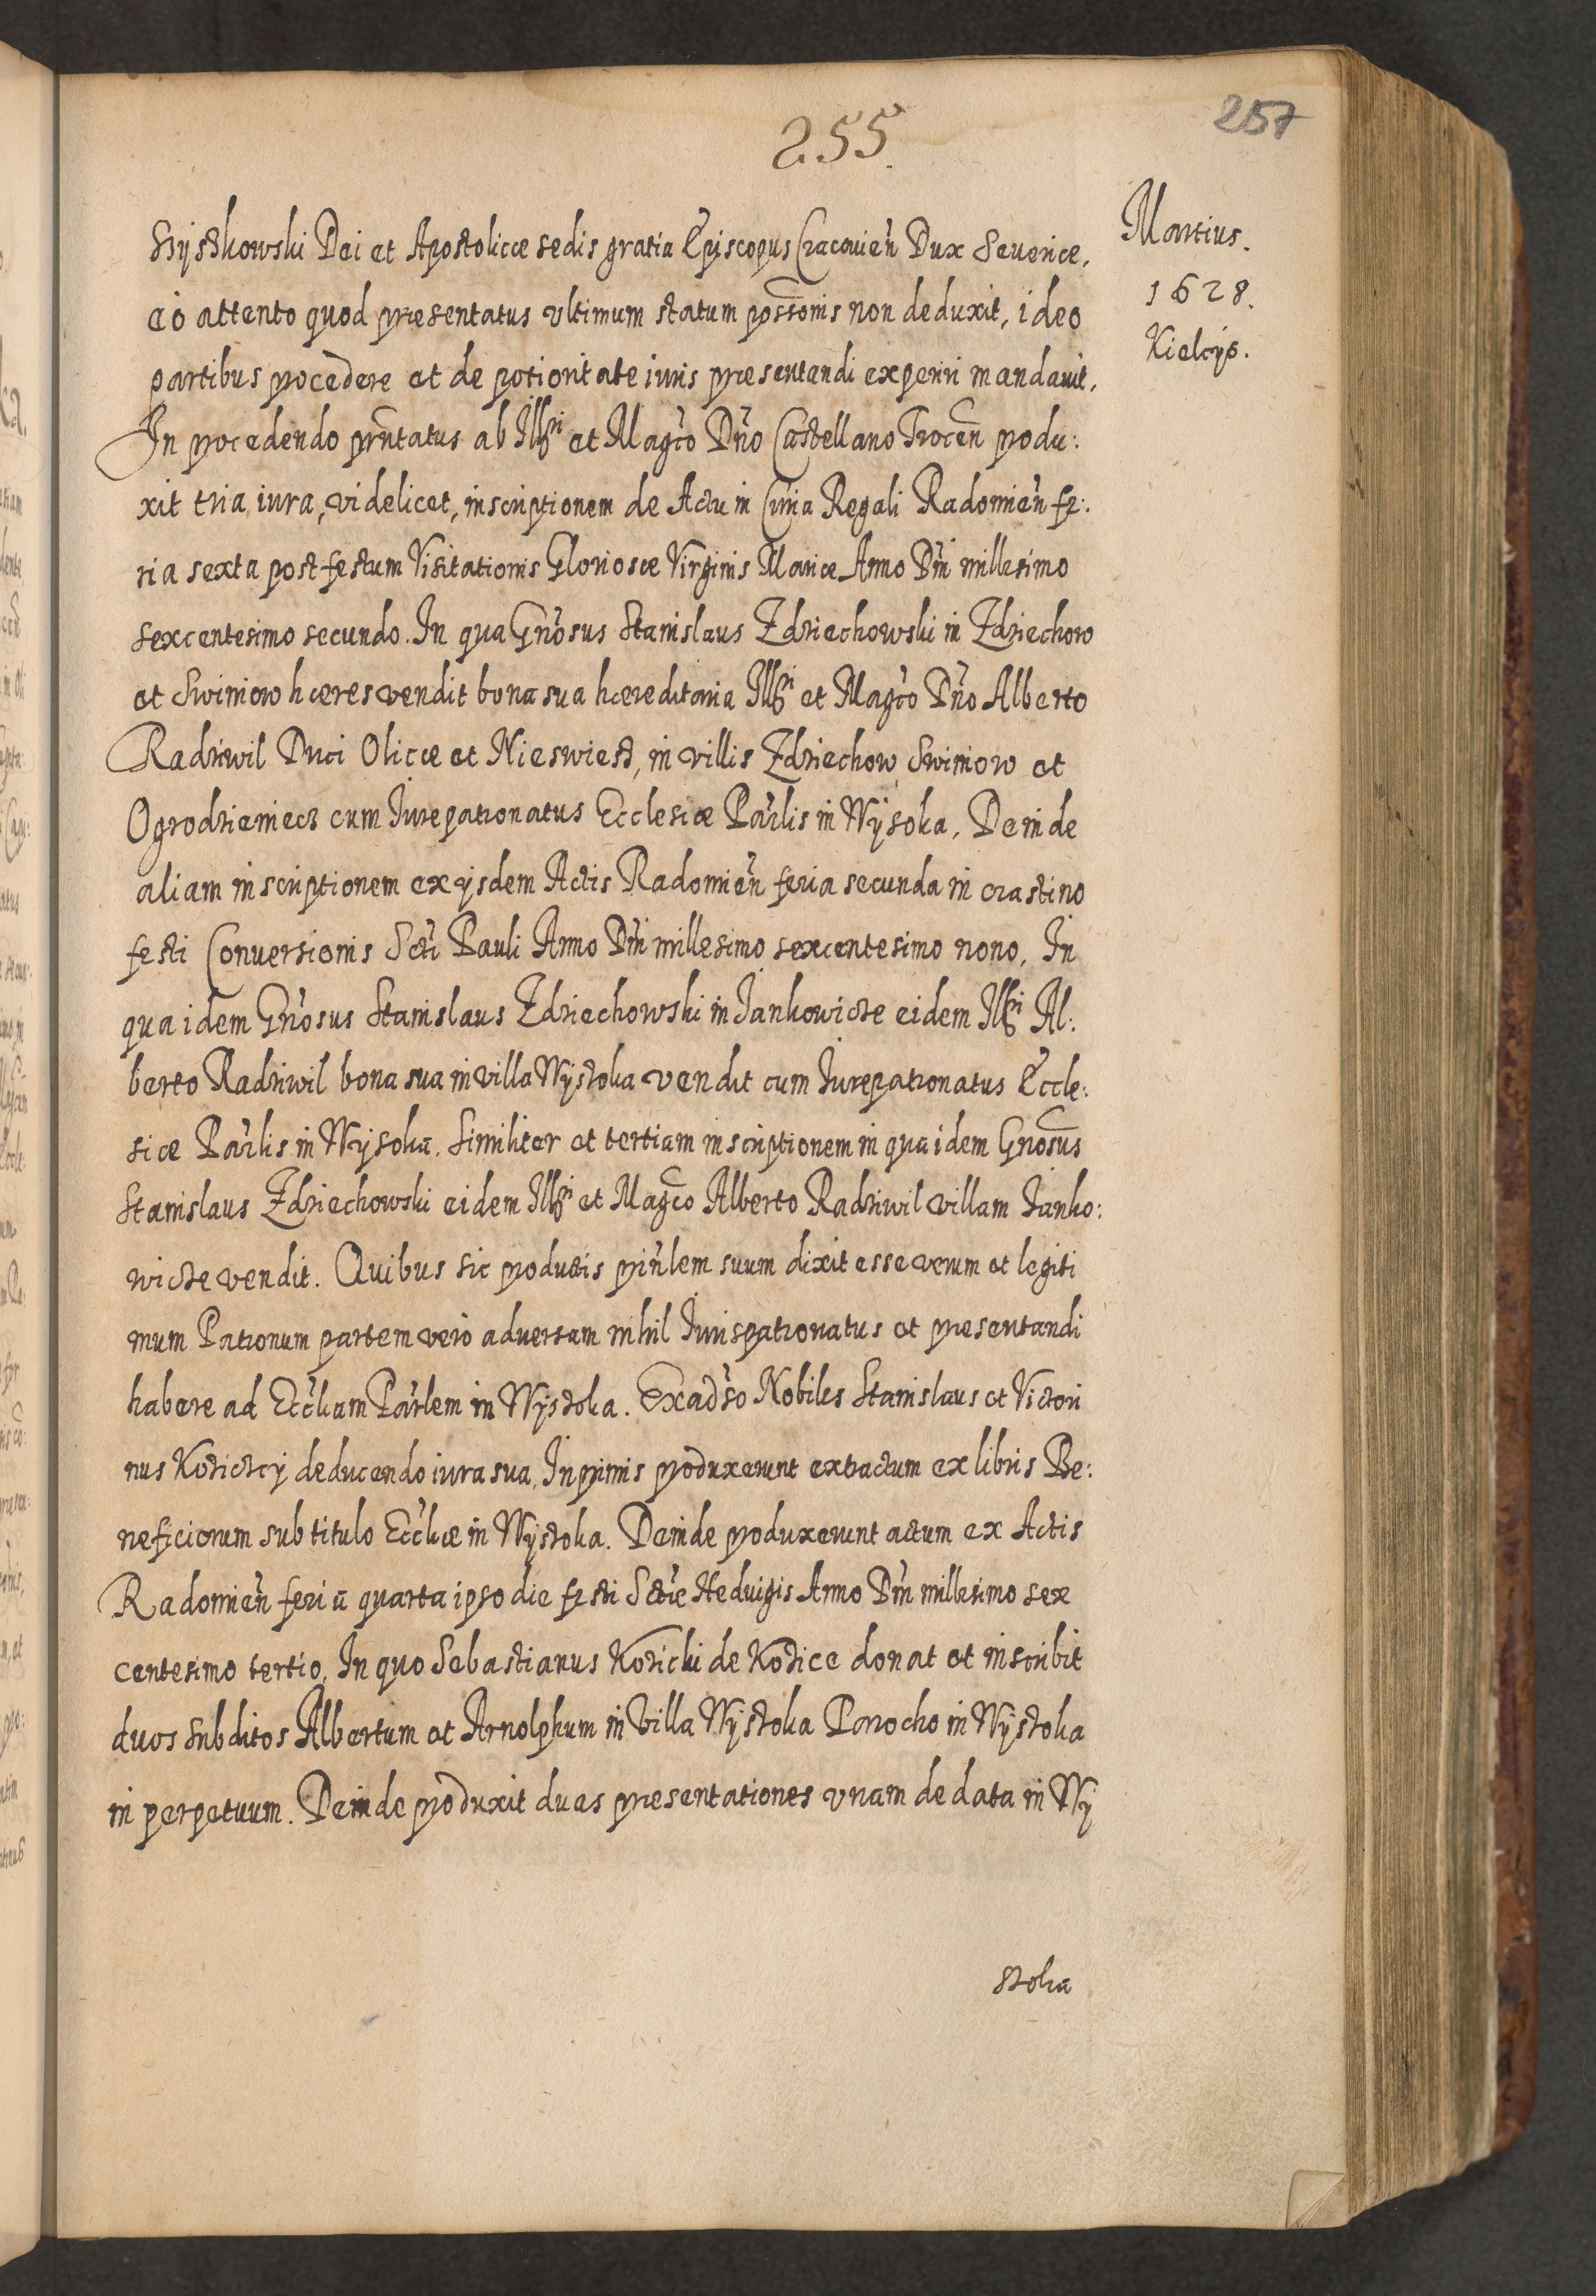 255.
257
Martius.
1628.
Kielcys.
Szyszkowski Dei et Apostolicæ sedis gratia Episcopus Cracovien̄ Dux Severiæ,
eò attento quod præsentatus vltimum statum possonis non deduxit, ideo
partibus procedere et de potioritate iuris præsentandi experiri mandavit.
In procedendo prntatus ab Illri et Magco Dno Castellano Trocen̄ produ:
xit tria iura, videlicet, inscriptionem de Actu in Curia Regali Radomien̄ fe:
ria sexta post festum Visitationis Gloriosæ Virginis Mariæ Anno Dni millesimo
sexcentesimo secundo. In qua Gnosus Stanislaus Zdziechowski in Zdziechow
et Swiniow hæres vendit bona sua hæreditaria Illri et Magco Dno Alberto
Radziwil Duci Olicæ et Nieswiesz, in villis Zdziechow Swiniow et
Ogrodzieniecz cum Iurepatronatus Ecclesiæ Parlis in Wysoka. Deinde
aliam inscriptionem ex ijsdem Actis Radomien̄ feria secunda in crastino
festi Conversionis Scti Pauli Anno Dni millesimo sexcentesimo nono, In
qua idem Gnosus Stanislaus Zdziechowski in Iankowicze eidem Illri Al:
berto Radziwil bona sua in villa Wyszoka vendit cum Iurepatronatus Eccle:
siæ Parlis in Wysoka. Similiter et tertiam inscriptionem in qua idem Gnosus
Stanislaus Zdziechowski eidem Illri et Magco Alberto Radziwil villam Ianko:
wicze vendit. Quibus sic productis prinlem suum dixit esse verum et legiti
mum Patronum partem verò adversam nihil Iurispatronatus et præsentandi
habere ad Eccliam Parlem in Wyszoka. Ex adso Nobiles Stanislaus et Victori
nus Koziczcy deducendo iura sua, In primis produxerunt extractum ex libris Be:
neficiorum sub titulo Eccliæ in Wyszoka. Deinde produxerunt actum ex Actis
Radomien̄ feria quarta ipso die festi Sctæ Hedvigis Anno Dni millesimo sex
centesimo tertio, In quo Sebastianus Kozicki de Kozice donat et inscribit
duos subditos Albertum et Arnolphum in Villa Wyszoka Parocho in Wyszoka
in perpetuum. Deinde produxit duas præsentationes vnam de data in Wy
szoka